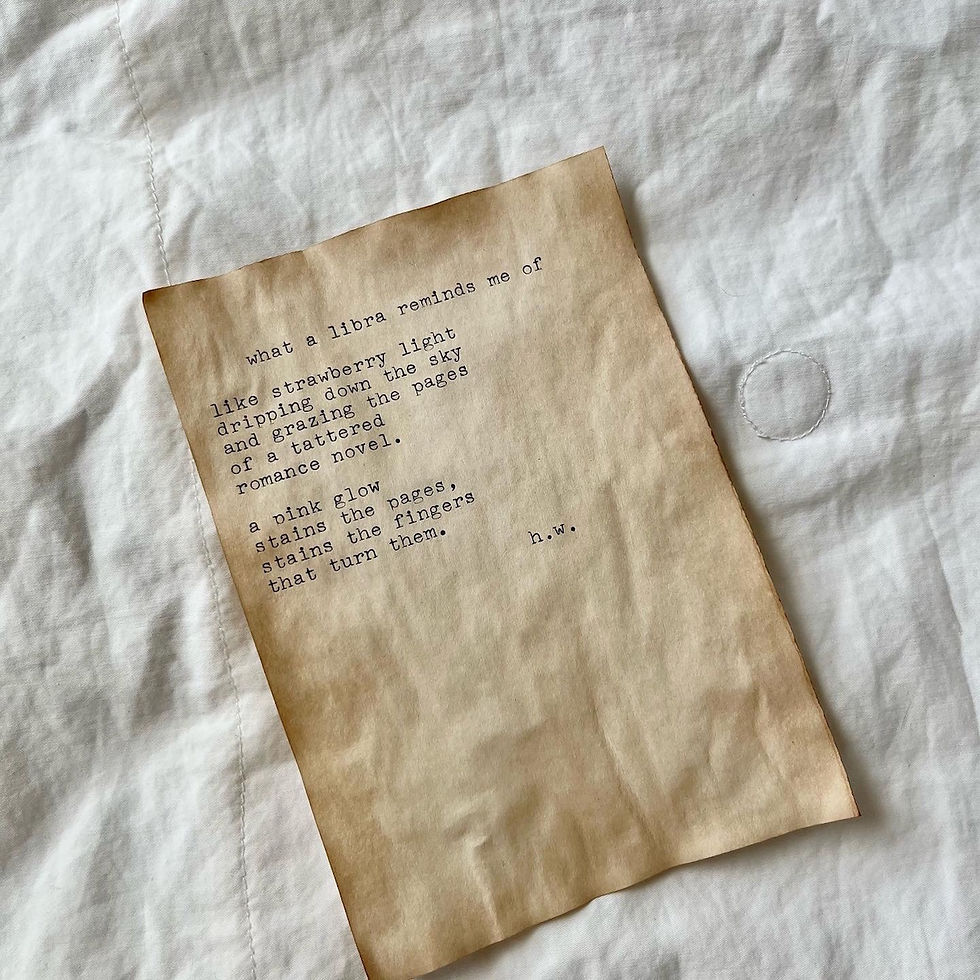 what a libra reminds me of
like strawberry light
dripping down the sky
and grazing the pages
of a tattered
romance novel.
a pink glow
stains the pages,
stains the fingers
that turn them.
h.w.